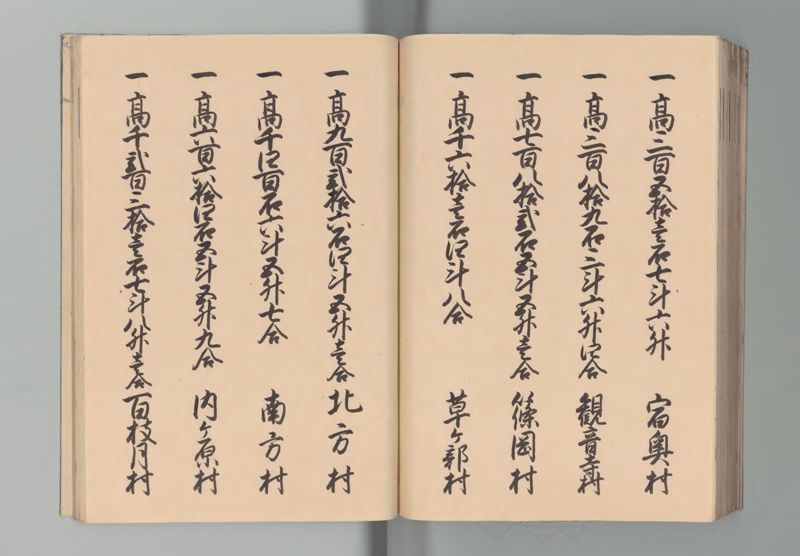 一 高三百五拾壱石七斗六升 宿奥村
一 高三百八拾九石三斗六升四合 観音寺村
一 高七百八拾弐石五斗五升壱合 篠岡村
一 高千六拾壱石四斗八合 草ヶ部村
一 高九百弐拾六石四斗五升壱合 北方村
一 高千四百石六斗五升七合 南方村
一 高六百六拾四石五斗五升九合 内ヶ原村
一 高千弐百三拾壱石七斗八升壱合 百枝月村